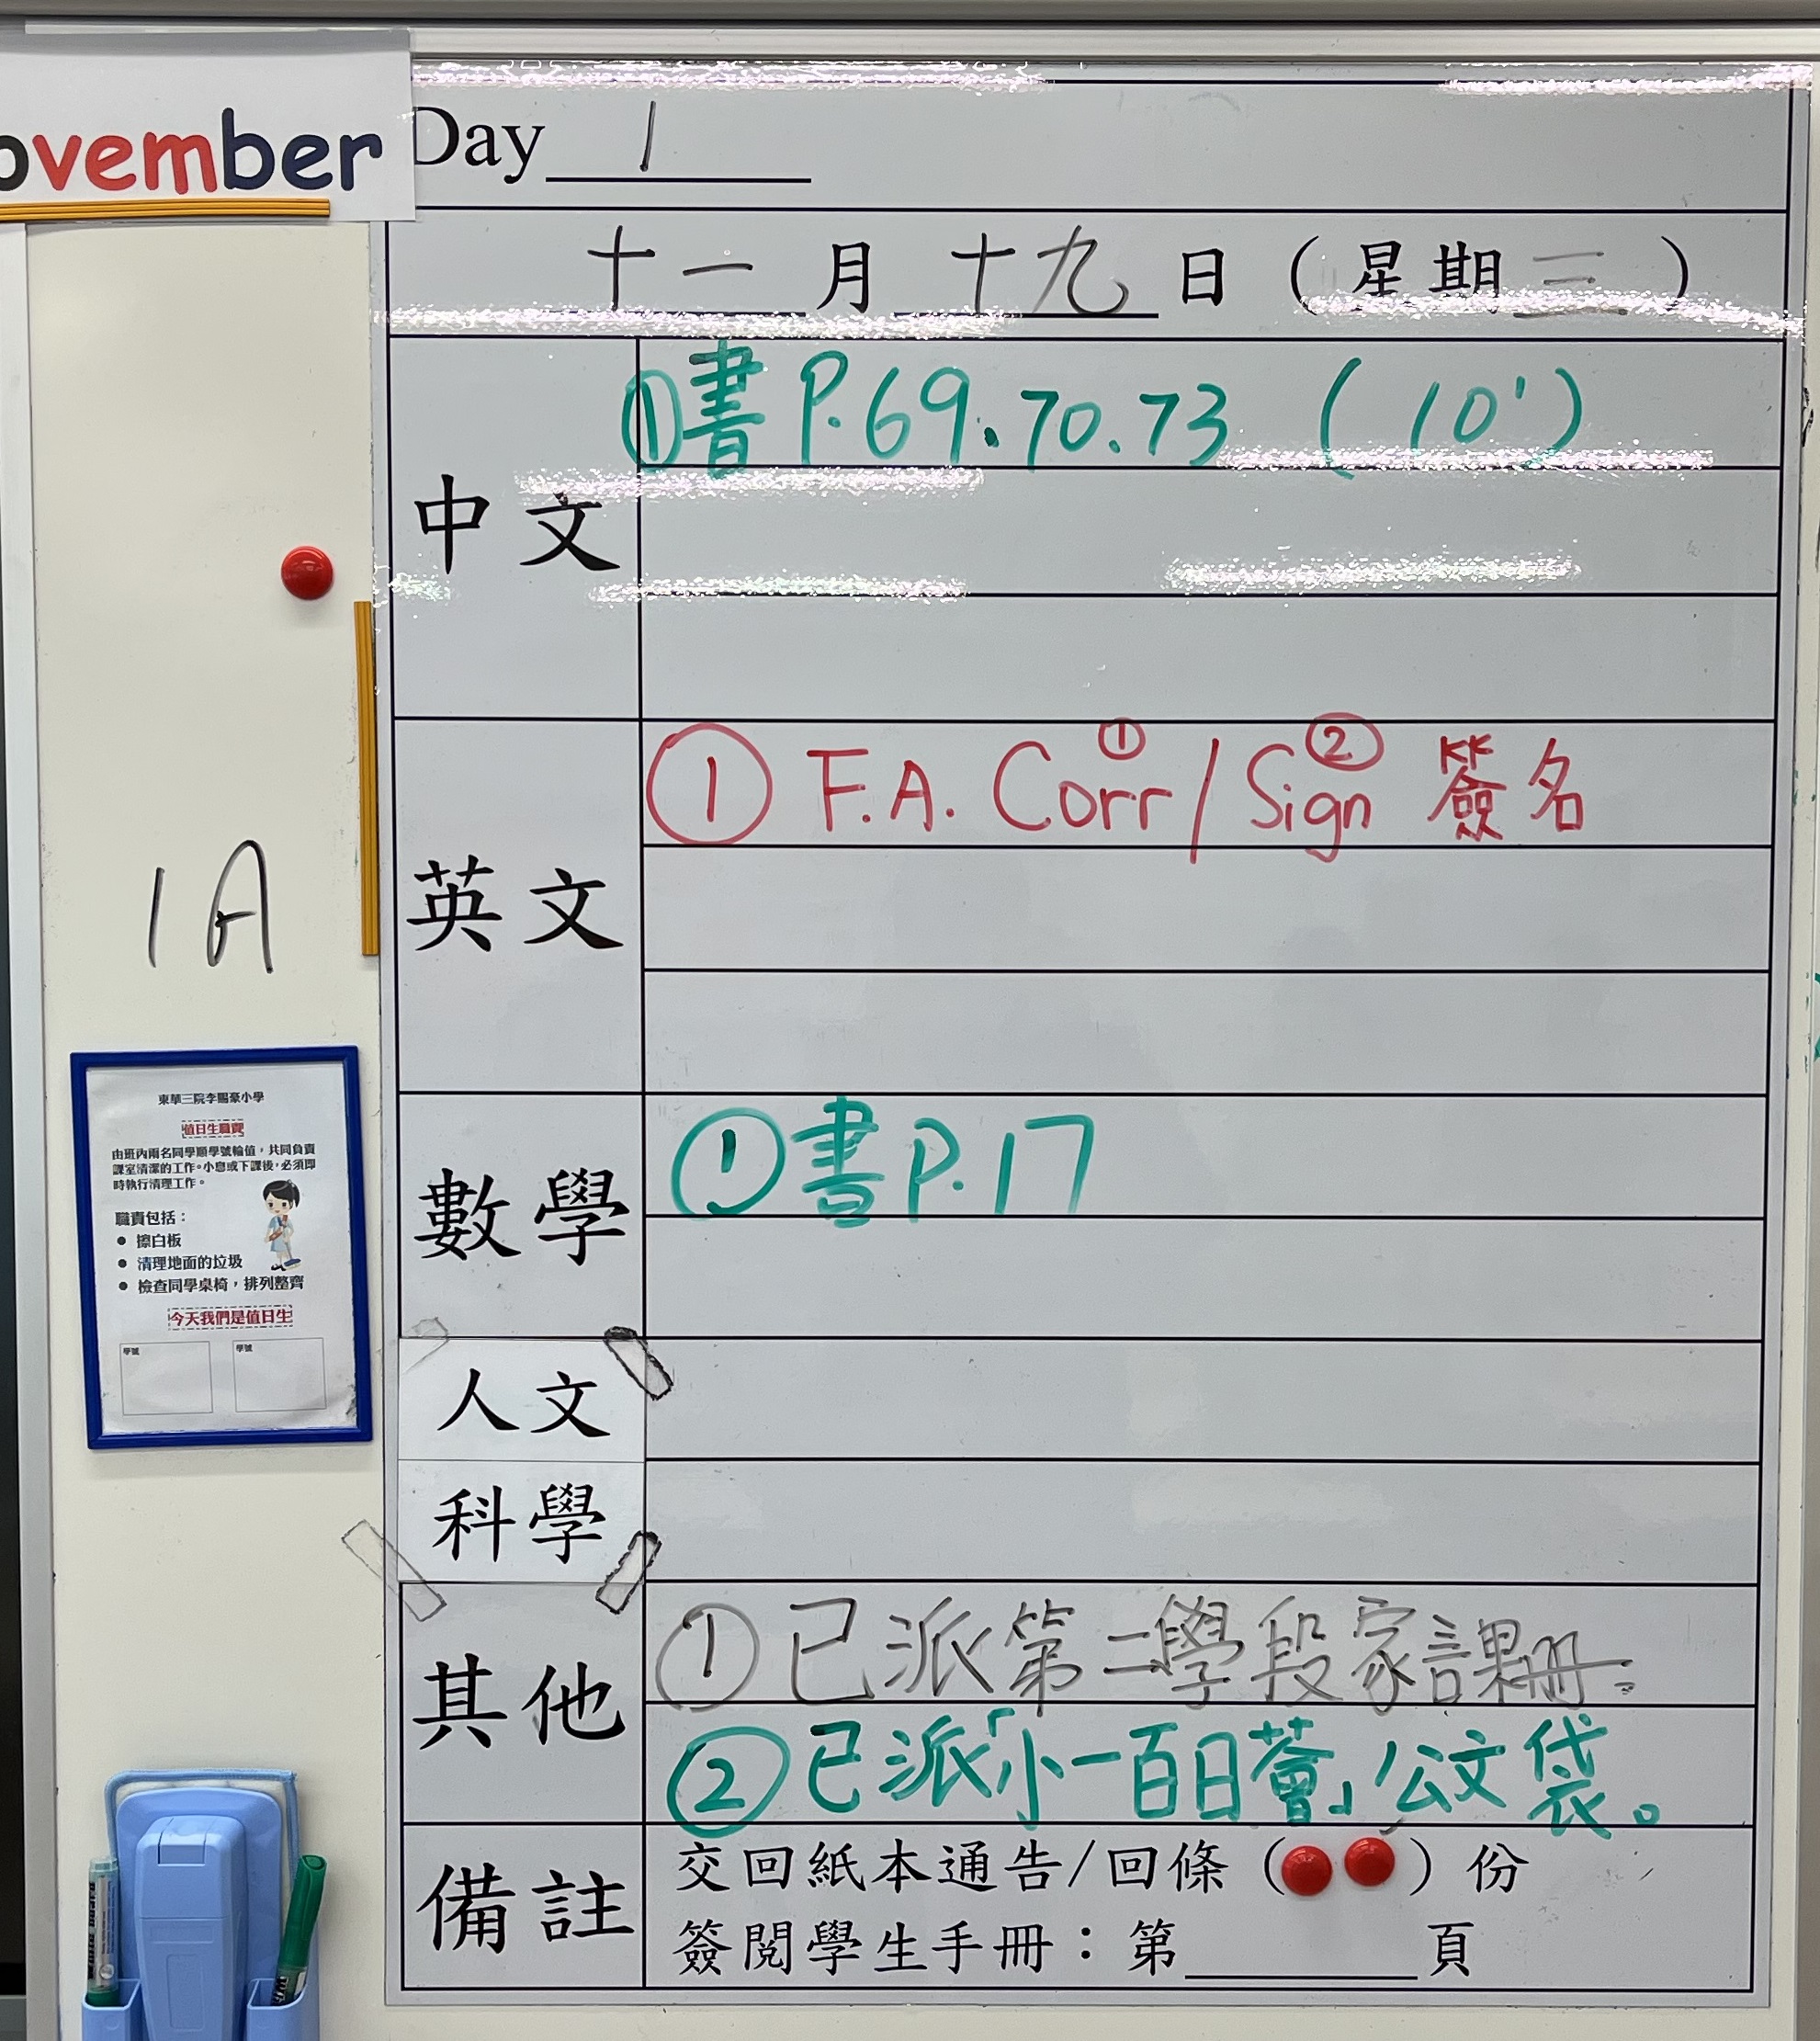 ovember
Day 1
十一月十九日（星期三）
中文
①書 P.69.70.73 (10')
英文
① F.A. Corr① / Sign② 簽名
1A
數學
①書 P.17
人文
科學
其他
①已派第二學段家課冊。
②已派「小一百日薈」公文袋。
備註
交回紙本通告/回條（ ）份
簽閱學生手冊：第 頁
東華三院李賜豪小學
值日生職責
由班內兩名同學順學號輪值，共同負責
課室清潔的工作。小息或下課後，必須即
時執行清理工作。
職責包括：
● 擦白板
● 清理地面的垃圾
● 檢查同學桌椅，排列整齊
今天我們是值日生
學號 學號